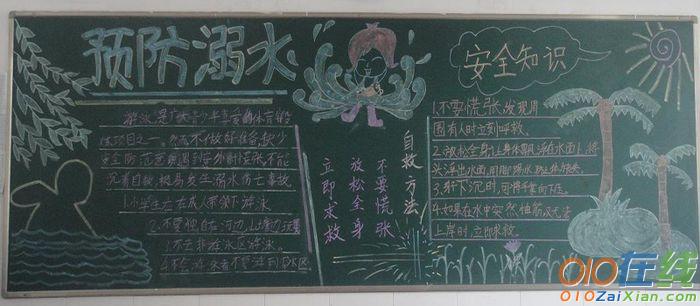 预防溺水
游泳是广大青少年喜爱的体育锻
炼项目之一。然而不做好准备、缺少
安全防范意识,遇到意外时慌张、不能
沉着自救,极易发生溺水伤亡事故。
1.小学生去在成人带领下游泳。
2.不要独自在河边、山塘边玩耍
3.不去非游泳区游泳。
4.不会游泳者不要游到深水区
自救方法
不要慌张
放松全身
立即求救
安全知识
1.不要慌张,发现周
围有人时立刻呼救。
2.放松全身,让身体飘浮在水面上,将
头浮出水面,用脚踢水
3.身体下沉时,可将手掌向下压。
4.如果在水中突然抽筋,又无法
上岸时,立即求救。
010在线
010ZaiXian.com